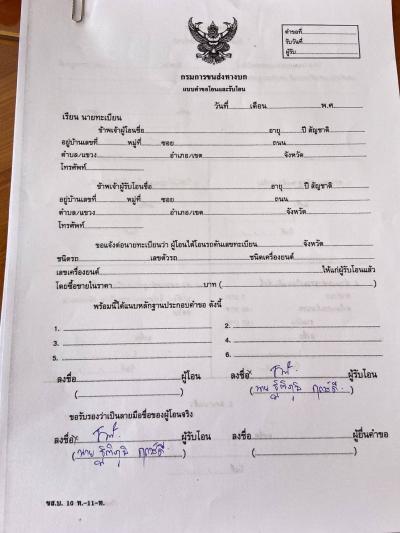 คำขอที่
รับวันที่
ผู้รับ
กรมการขนส่งทางบก
แบบคำขอโอนและรับโอน
วันที่ เดือน พ.ศ.
เรียน นายทะเบียน
ข้าพเจ้าผู้โอนชื่อ อายุ ปี สัญชาติ
อยู่บ้านเลขที่ หมู่ที่ ซอย ถนน
ตำบล/แขวง อำเภอ/เขต จังหวัด
โทรศัพท์
ข้าพเจ้าผู้รับโอนชื่อ อายุ ปี สัญชาติ
อยู่บ้านเลขที่ หมู่ที่ ซอย ถนน
ตำบล/แขวง อำเภอ/เขต จังหวัด
โทรศัพท์
ขอแจ้งต่อนายทะเบียนว่า ผู้โอนได้โอนรถคันเลขทะเบียน จังหวัด
ชนิดรถ เลขตัวรถ ชนิดเครื่องยนต์
เลขเครื่องยนต์ ให้แก่ผู้รับโอนแล้ว
โดยซื้อขายในราคา บาท ( )
พร้อมนี้ได้แนบหลักฐานประกอบคำขอ ดังนี้
1. 2.
3. 4.
5. 6.
ลงชื่อ ผู้โอน ลงชื่อ ผู้รับโอน
( ) (นาย )
ขอรับรองว่าเป็นลายมือชื่อของผู้โอนจริง
ลงชื่อ ผู้รับโอน ลงชื่อ ผู้ยื่นคำขอ
(นาย ) ( )
ขส.บ. 10 ท.-11-ท.